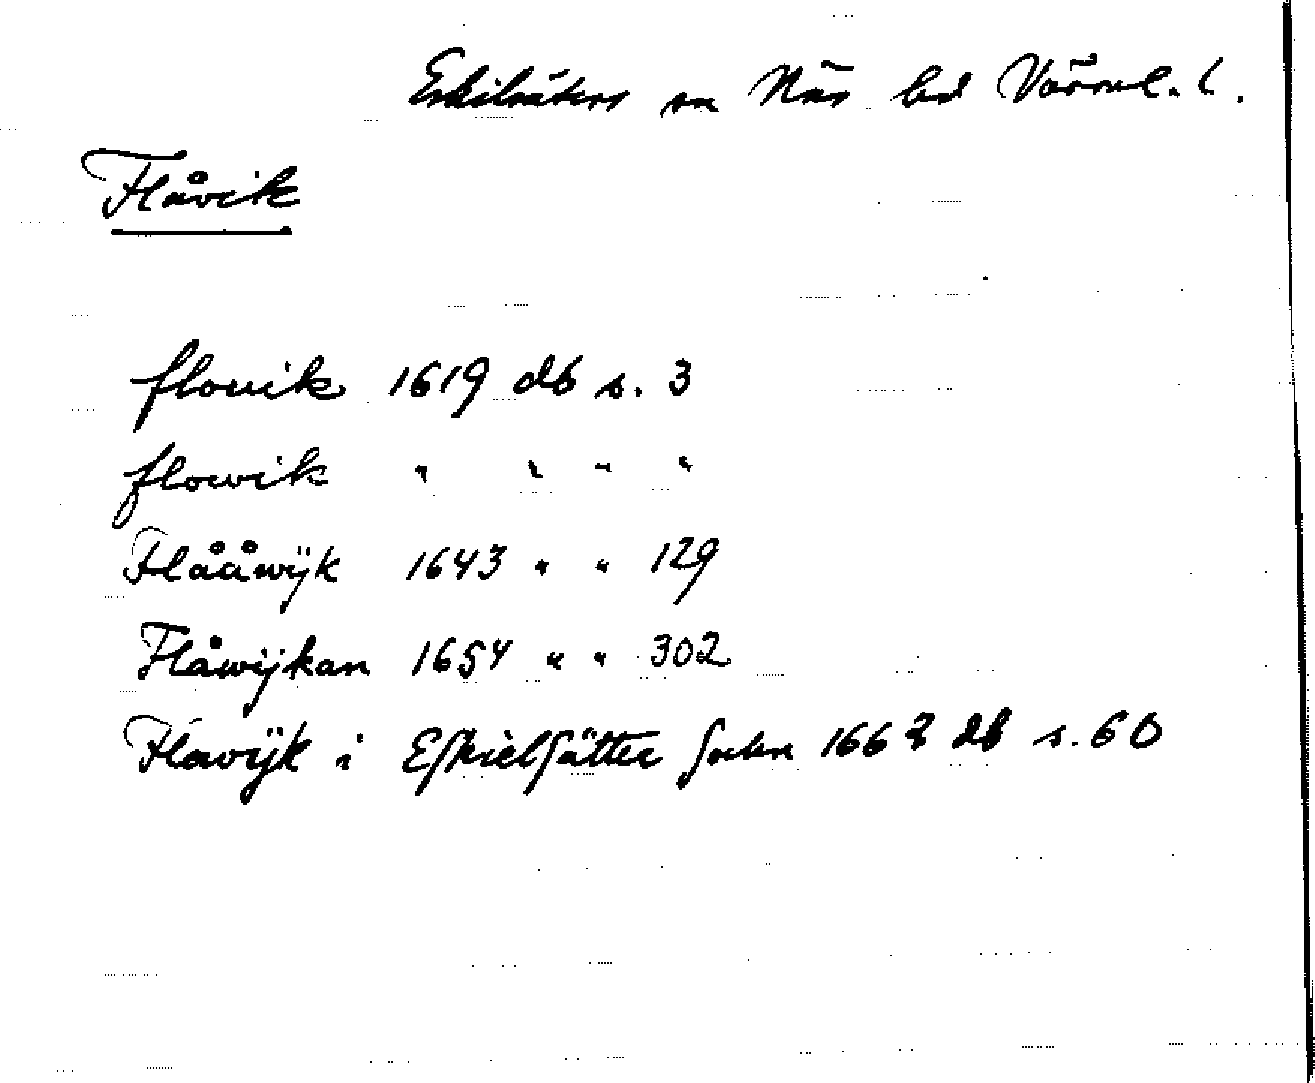 Eskilsäters sn Näs hd Värml. l.
Flåvik
flouik 1619 db s. 3
flowik " " " "
Flååwÿk 1643 " " 129
Flåwijkan 1654 " " 302
Flowÿk i Eskielsätter Sochn 1662 db s. 60